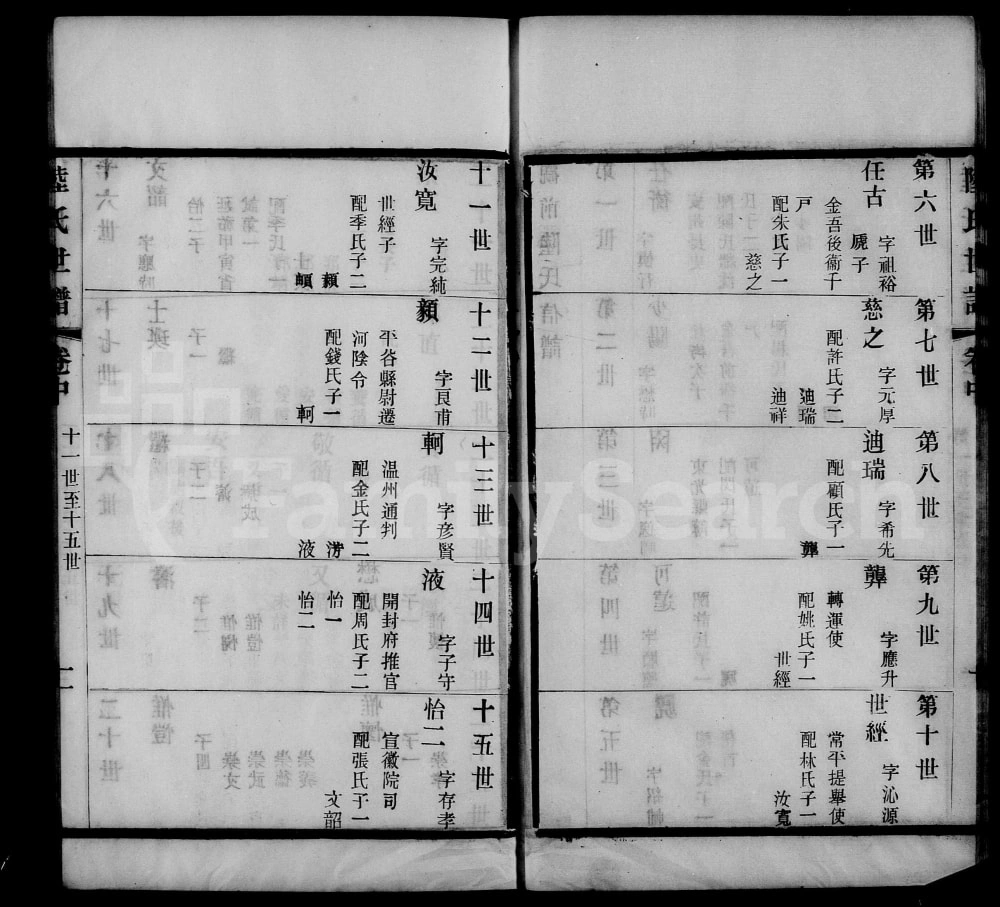 第六世
任古 字祖裕
虒子
金吾後衞千
戶
配朱氏子一
慈之
第七世
慈之 字元厚
配許氏子二
迪瑞
迪祥
第八世
迪瑞 字希先
配顧氏子一
龏
第九世
龏 字應升
轉運使
配姚氏子一
世經
第十世
世經 字沁源
常平提舉使
配林氏子一
汝寬
十一世
汝寬 字完純
世經子
配季氏子二
顥
十二世
顥 字艮甫
平谷縣尉遷
河陰令
配錢氏子一
軻
十三世
軻 字彦賢
温州通判
配金氏子二
液
十四世
液 字子守
開封府推官
配周氏子二
怡一
怡二
十五世
怡二 字存孝
宣徽院司
配張氏子一
文韶
陸氏世譜
卷中
十一世至十五世
二
FamilySearch